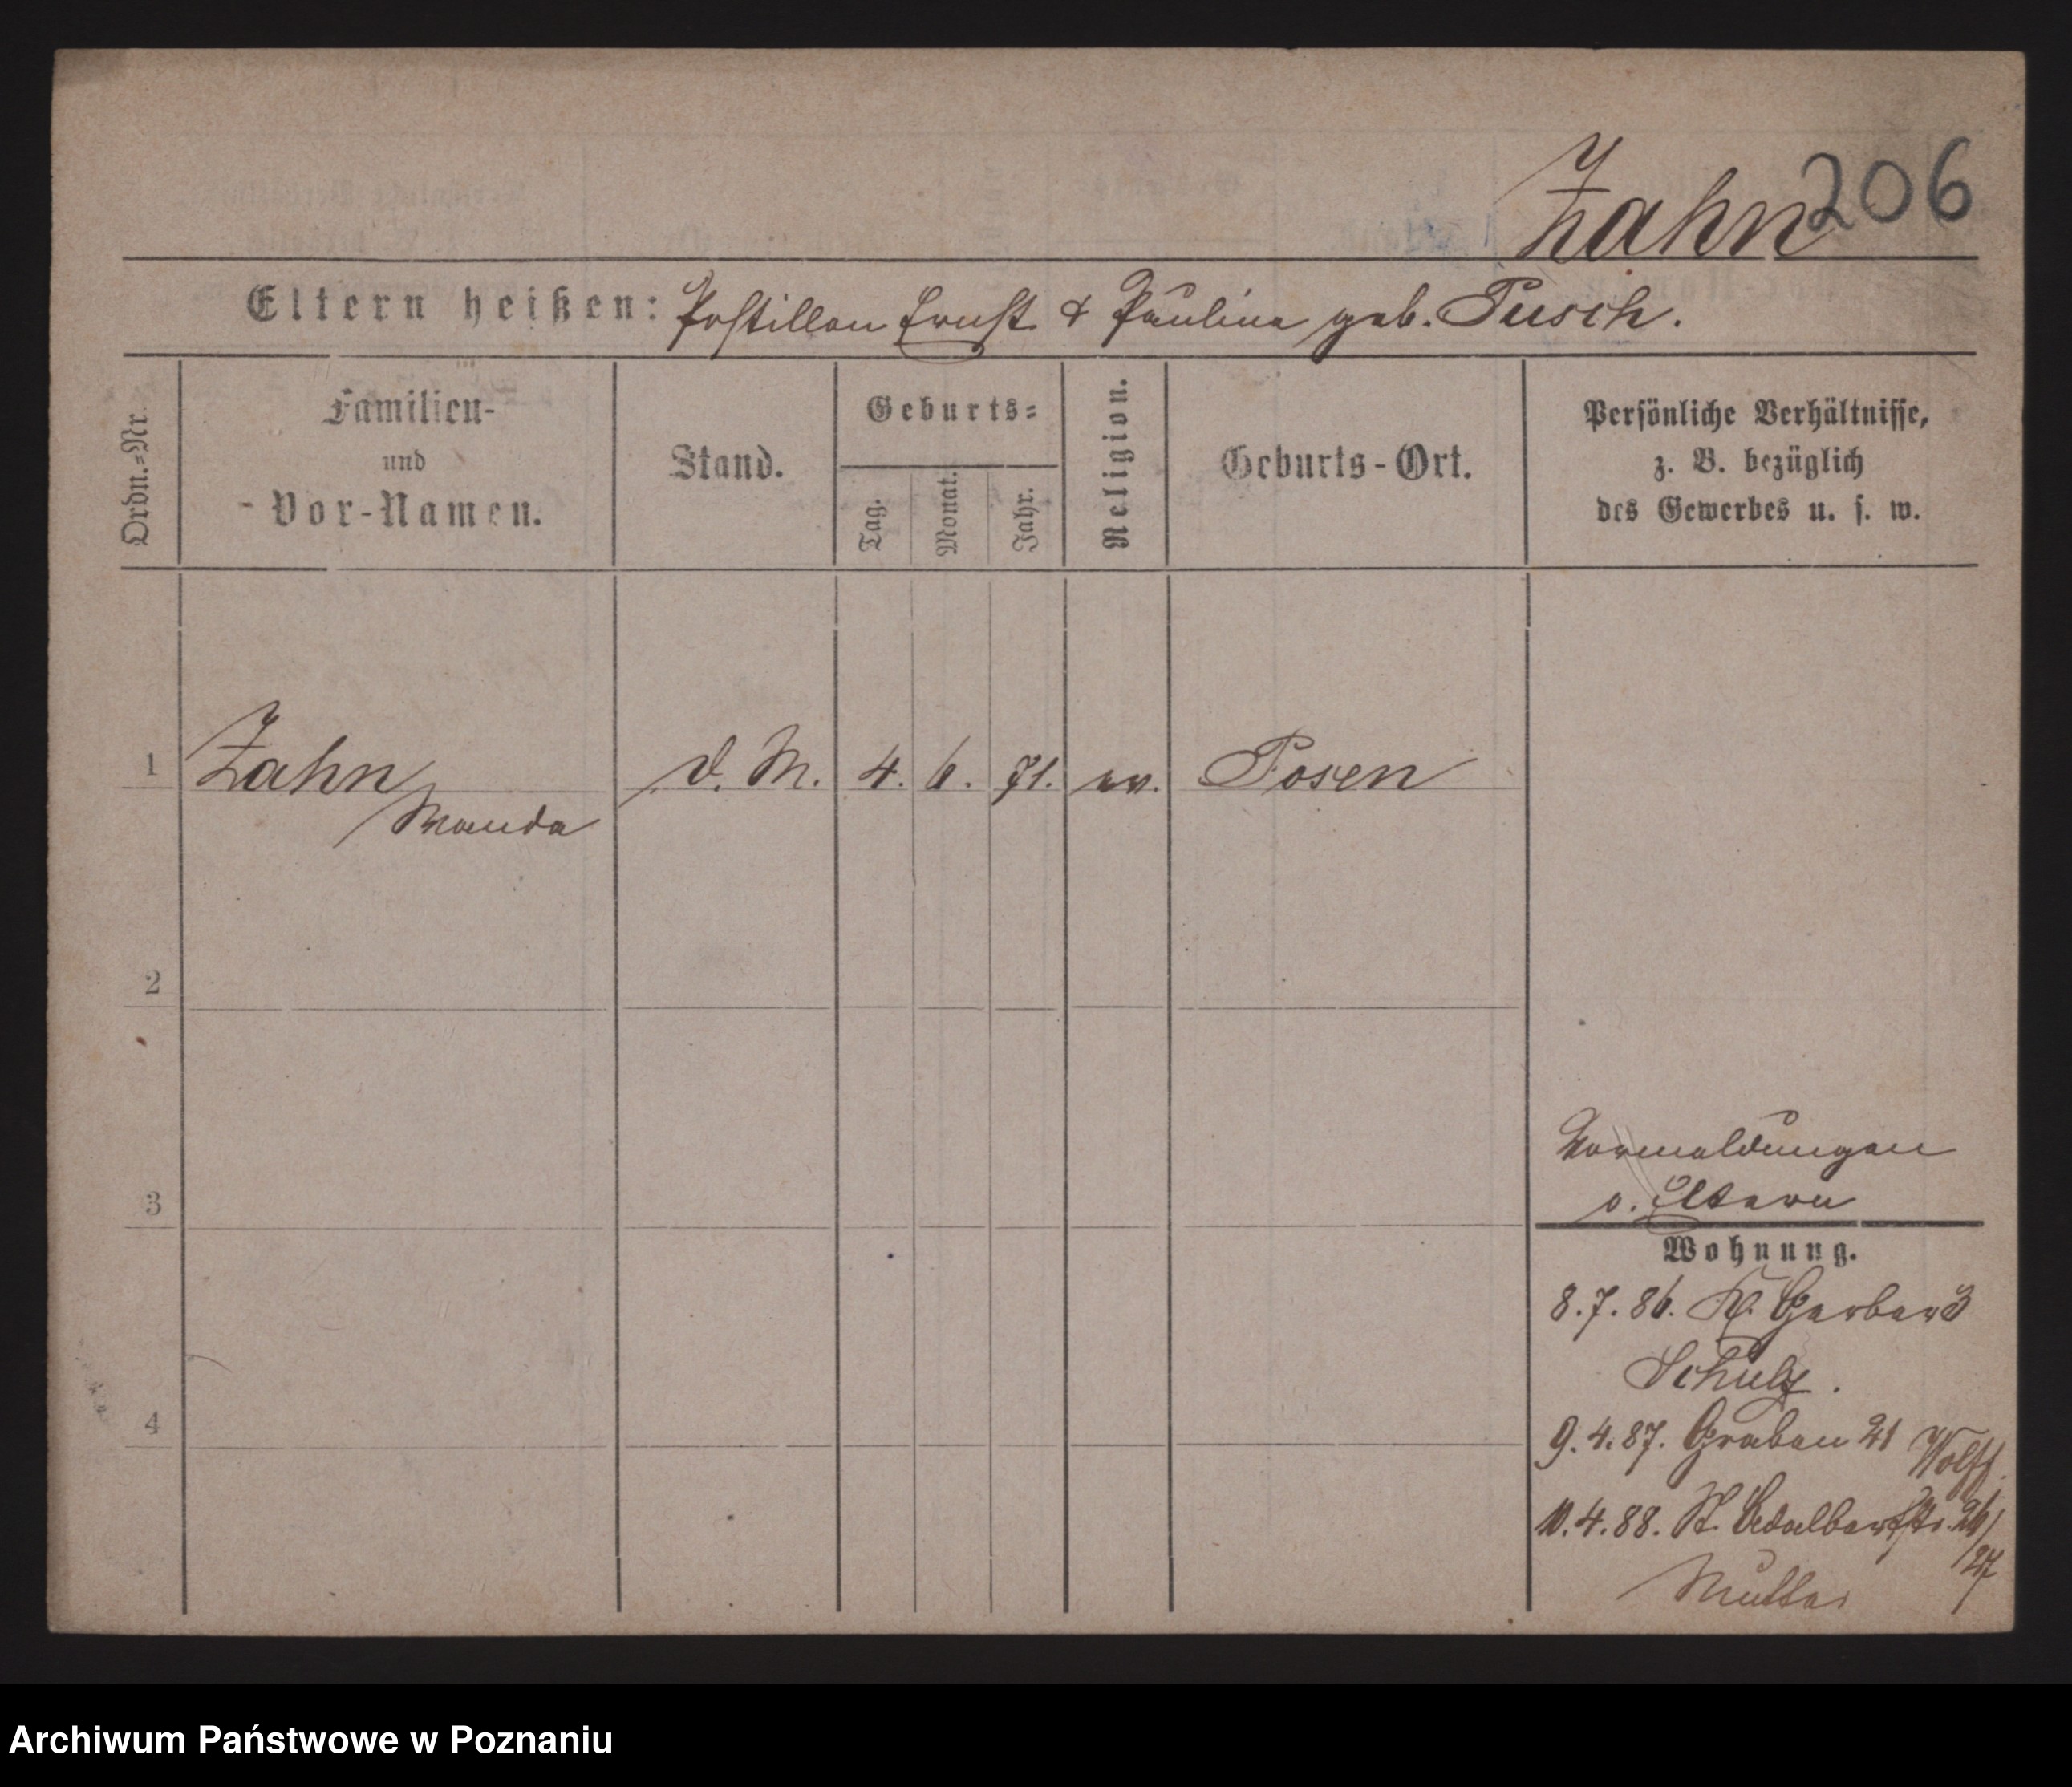 Zahn 206
Eltern heißen: Postillon Ernst & Pauline geb. Pusch.
Ordn.=Nr.
Familien-
und
Vor-Namen.
Stand.
Geburts=
Tag.
Monat.
Jahr.
Religion.
Geburts-Ort.
Persönliche Verhältnisse,
z. B. bezüglich
des Gewerbes u. s. w.
1 Zahn d. M. 4. 6. 71. ev. Posen
Wanda
2
3
4
Vormeldungen
s. Eltern
Wohnung.
8.7.86. Kl. Gerber 3
Schulz.
9.4.87. Graben 21 Wolff.
10.4.88. St. Adalbertstr. 26/
27
Mutter
Archiwum Państwowe w Poznaniu